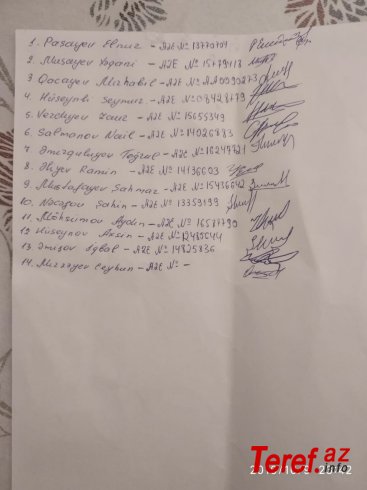 1. Paşayev Elnur – AZE № 13770709
2. Musayev Yaşani – AZE № 15779418
3 Qocayev Mirhabil – AZE № AA0090273
4. Hüseynli Seymur – AZE № 08428779
5. Verdiyev Zaur – AZE № 15655349
6. Salmanov Nail – AZE № 14026883
7. Əmirquluyev Toğrul – AZE № 16247721
8. Əliyev Ramin – AZE № 14136603
9. Mustafayev Şahmar – AZE № 15436642
10. Nəcəfov Şahin – AZE № 13353193
11. Möhsümov Aydın – AZE № 16587790
12 Hüseynov – AZE №
13 İqbal – AZE № 14825836
14. Mirzəyev Ceyhun – AZE № –
Teref.az
.info